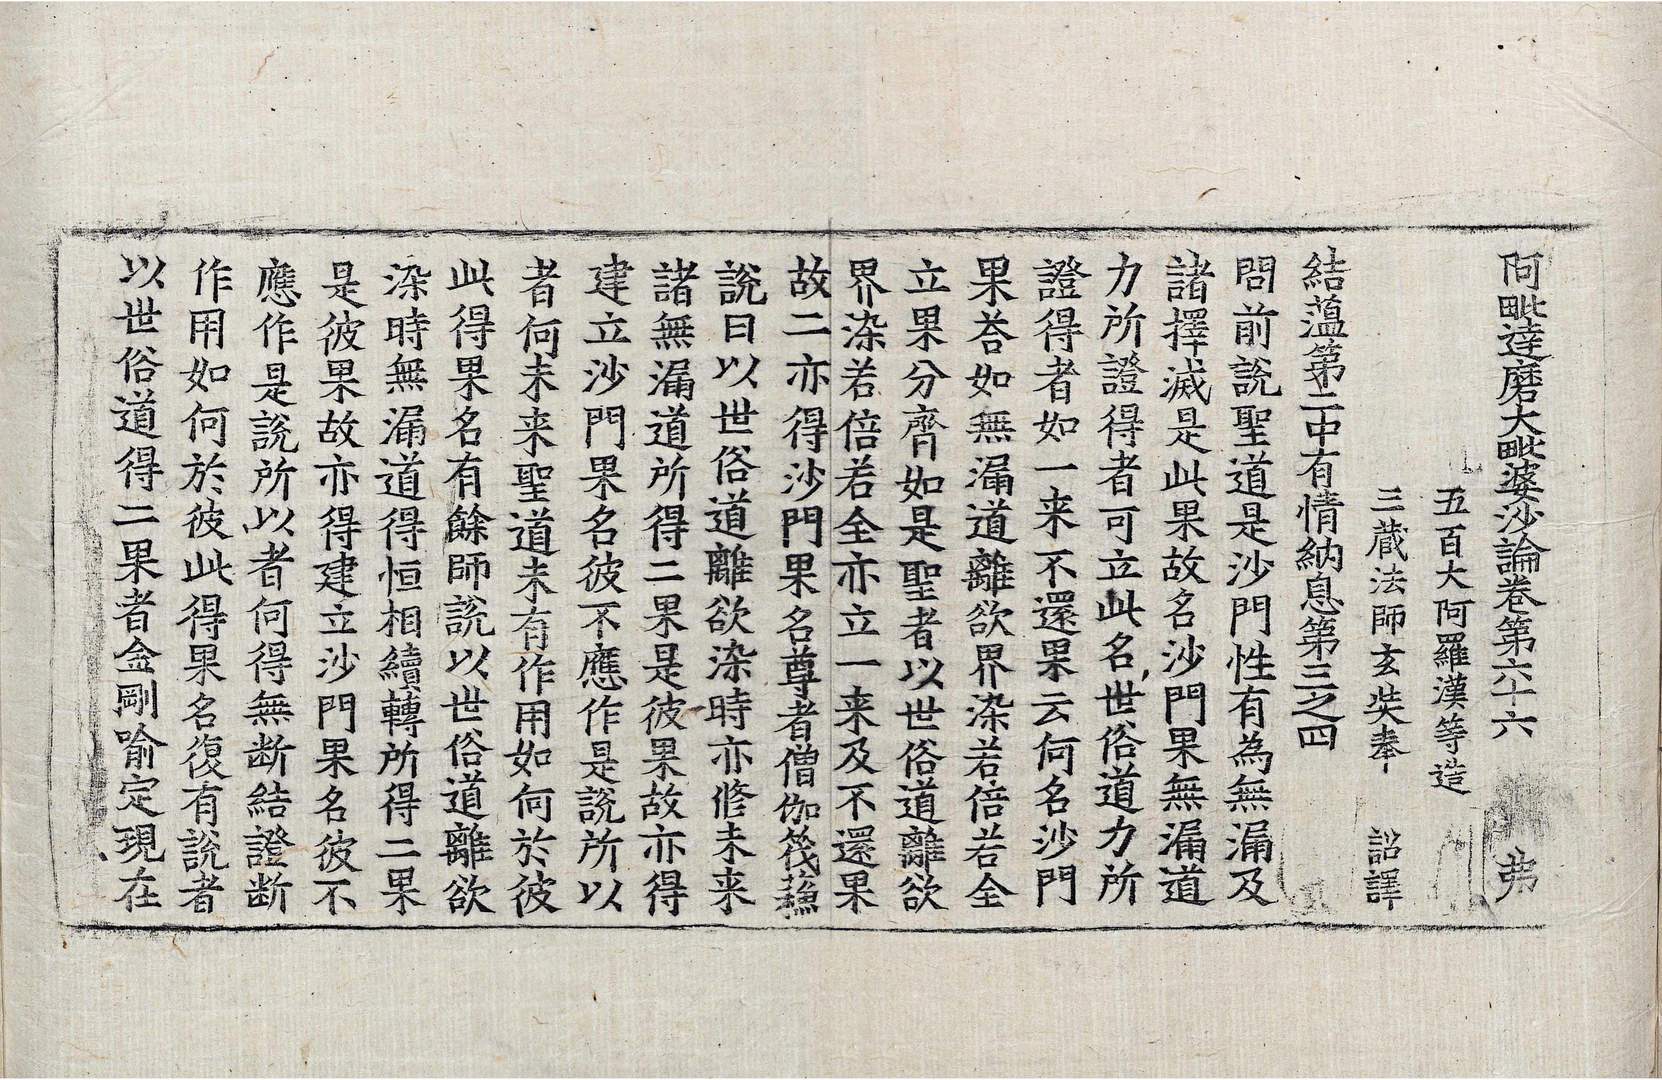 阿毗達磨大毗婆沙論卷第六十六 弗
五百大阿羅漢等造
三藏法師玄奘奉 詔譯
結蘊第二中有情納息第三之四
問前說聖道是沙門性有為無漏及
諸擇滅是此果故名沙門果無漏道
力所證得者可立此名世俗道力所
證得者如一来不還果云何名沙門
果荅如無漏道離欲界染若倍若全
立果分齊如是聖者以世俗道離欲
界染若倍若全亦立一来及不還果
故二亦得沙門果名尊者僧伽筏蘇
說曰以世俗道離欲染時亦修未来
諸無漏道所得二果是彼果故亦得
建立沙門果名彼不應作是說所以
者何未来聖道未有作用如何於彼
此得果名有餘師說以世俗道離欲
染時無漏道得恒相續轉所得二果
是彼果故亦得建立沙門果名彼不
應作是說所以者何得無斷結證斷
作用如何於彼此得果名復有說者
以世俗道得二果者金剛喻定現在